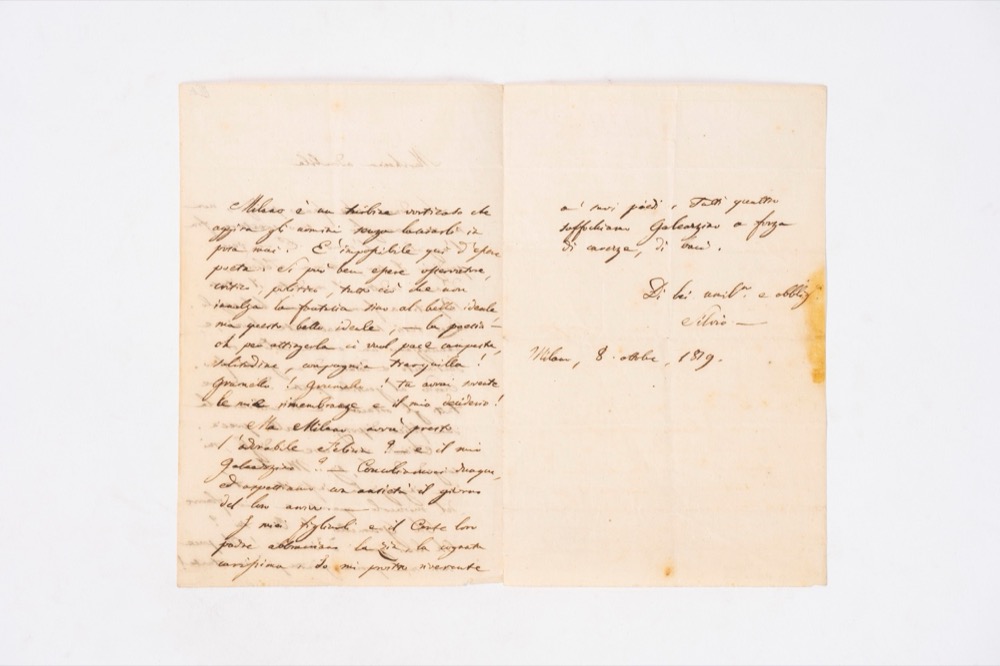 Milano è un turbine vorticoso che
aggira gli uomini senza lasciarli in
posa mai. È impossibile qui d'essere
poeta. Si può ben essere osservatore,
critico, politico, tutto ciò che non
innalza la fantasia sino al bello ideale,
ma questo bello ideale, — la poesia —
oh per attingerla ci vuol pace campestre,
solitudine, compagnia tranquilla!
Grumello! Grumello! tu avrai sovente
le mie rimembranze e il mio desiderio!
Ma Milano avrà presto
l'adorabile ? — e il mio
Galeazzino? — Consoliamoci dunque,
ed aspettiamo con ansietà il giorno
del loro arrivo. —
I miei figliuoli e il Conte loro
padre abbracciano la zia, la cognata
carissima e Io mi prostro riverente
a' suoi piedi. Tutti quattro
soffochiamo Galeazzino a forza
di carezze, di baci.
Di lei umil.mo e obblig.mo
Silvio —
Milano, 8. ottobre, 1819.